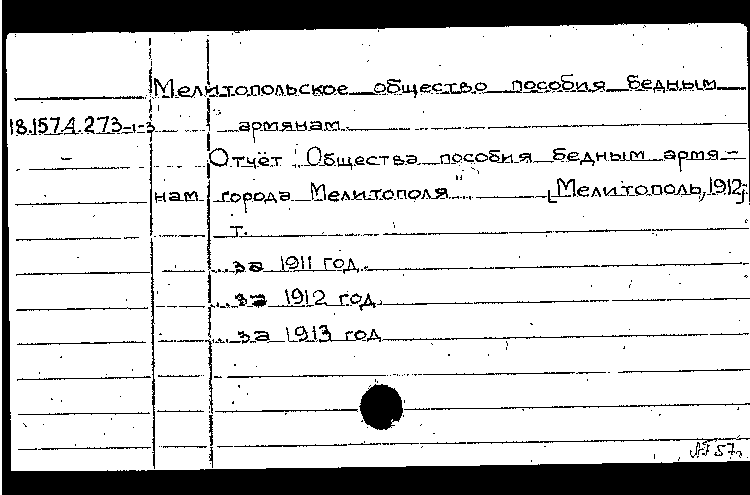 Мелитопольское общество пособия бедным
18.157.4.273-1-3 армянам.
Отчёт "Общества пособия бедным армя-
нам города Мелитополя"... [Мелитополь, 1912;
т.
...за 1911 год.
...за 1912 год.
...за 1913 год
57.